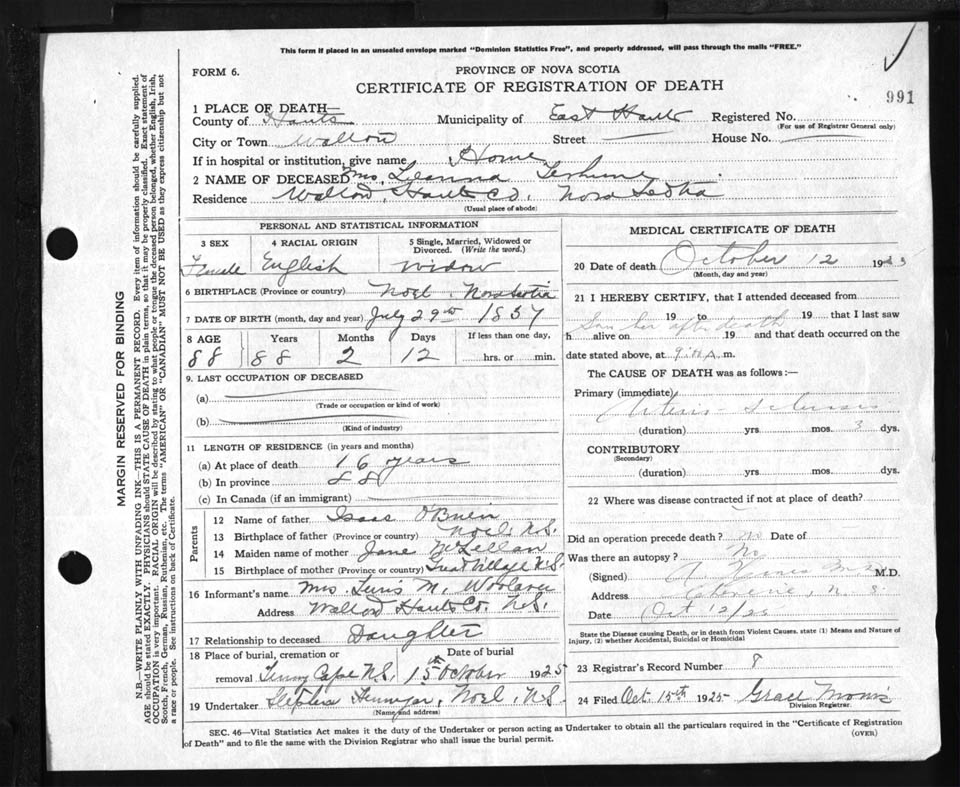 This form if placed in an unsealed envelope marked "Dominion Statistics Free", and properly addressed, will pass through the mails "FREE."
FORM 6.
PROVINCE OF NOVA SCOTIA
CERTIFICATE OF REGISTRATION OF DEATH
991
1 PLACE OF DEATH—
County of Hants Municipality of East Hants Registered No.
(For use of Registrar General only)
City or Town Walton Street House No.
If in hospital or institution, give name Home
2 NAME OF DECEASED Mrs. Leanna
Residence Walton, Hants Co. Nova Scotia
(Usual place of abode)
PERSONAL AND STATISTICAL INFORMATION
3 SEX 4 RACIAL ORIGIN 5 Single, Married, Widowed or Divorced. (Write the word.)
Female English Widow
6 BIRTHPLACE (Province or country) Noel, Nova Scotia
7 DATE OF BIRTH (month, day and year) July 29th 1837
8 AGE Years Months Days If less than one day,
88 88 2 12 hrs. or min.
9. LAST OCCUPATION OF DECEASED
(a)
(Trade or occupation or kind of work)
(b)
(Kind of industry)
11 LENGTH OF RESIDENCE (in years and months)
(a) At place of death 16 years
(b) In province 88
(c) In Canada (if an immigrant)
Parents
12 Name of father Isaac O'Brien
13 Birthplace of father (Province or country) Noel, N.S.
14 Maiden name of mother Jane McLellan
15 Birthplace of mother (Province or country) Great Village N.S.
16 Informant's name Mrs. M.
Address Walton Hants Co. N.S.
17 Relationship to deceased Daughter
18 Place of burial, cremation or Date of burial
removal Tenny Cape N.S. 15th October 1925
19 Undertaker Stephen Noel, N.S.
(Name and address)
MEDICAL CERTIFICATE OF DEATH
20 Date of death October 12 1925
(Month, day and year)
21 I HEREBY CERTIFY, that I attended deceased from
19 to 19 that I last saw
Saw her after death
h alive on 19 and that death occurred on the
date stated above, at 9 A. m.
The CAUSE OF DEATH was as follows:—
Primary (immediate)
Arterio-sclerosis
(duration) yrs. mos. 3 dys.
CONTRIBUTORY
(Secondary)
(duration) yrs. mos. dys.
22 Where was disease contracted if not at place of death?
Did an operation precede death? no Date of
Was there an autopsy? No
(Signed) M.D.
Address N.S.
Date Oct 12/25
State the Disease causing Death, or in death from Violent Causes. state (1) Means and Nature of
Injury, (2) whether Accidental, Suicidal or Homicidal
23 Registrar's Record Number 8
24 Filed Oct. 15th 1925- Grace
Division Registrar.
SEC. 46—Vital Statistics Act makes it the duty of the Undertaker or person acting as Undertaker to obtain all the particulars required in the "Certificate of Registration
of Death" and to file the same with the Division Registrar who shall issue the burial permit.
(OVER)
MARGIN RESERVED FOR BINDING
N.B.—WRITE PLAINLY WITH UNFADING INK—THIS IS A PERMANENT RECORD. Every item of information should be carefully supplied.
AGE should be stated EXACTLY. PHYSICIANS should STATE CAUSE OF DEATH in plain terms, so that it may be properly classified. Exact statement of
OCCUPATION is very important. RACIAL ORIGIN will be described by stating to what people or tongue the deceased person belonged, whether English, Irish,
Scotch, French, German, Russian, Ruthenian, etc. The terms "AMERICAN" OR "CANADIAN" MUST NOT BE USED as they express citizenship but not
a race or people. See instructions on back of Certificate.